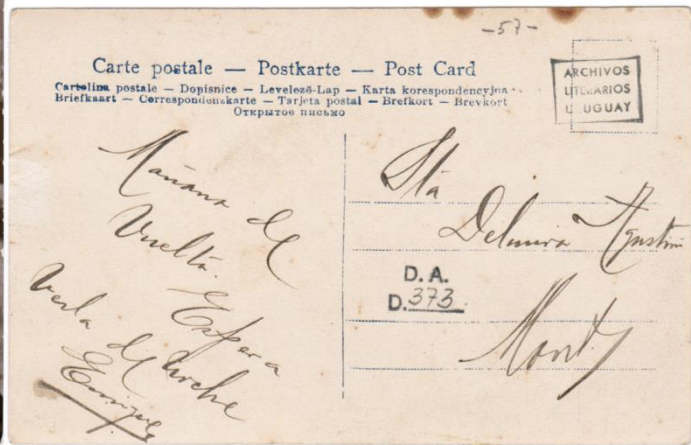 -57-
Carte postale — Postkarte — Post Card
Cartolina postale — Dopisnice — Levelező-Lap — Karta korespondencyjna
Briefkaart — Correspondenzkarte — Tarjeta postal — Brefkort — Brevkort
Открытое письмо
ARCHIVOS
LITERARIOS
URUGUAY
Mañana de
Vuelta.
Espera
Verla de noche
Enrique
Sta
Delmira Agustini
D. A.
D. 373.
Mont